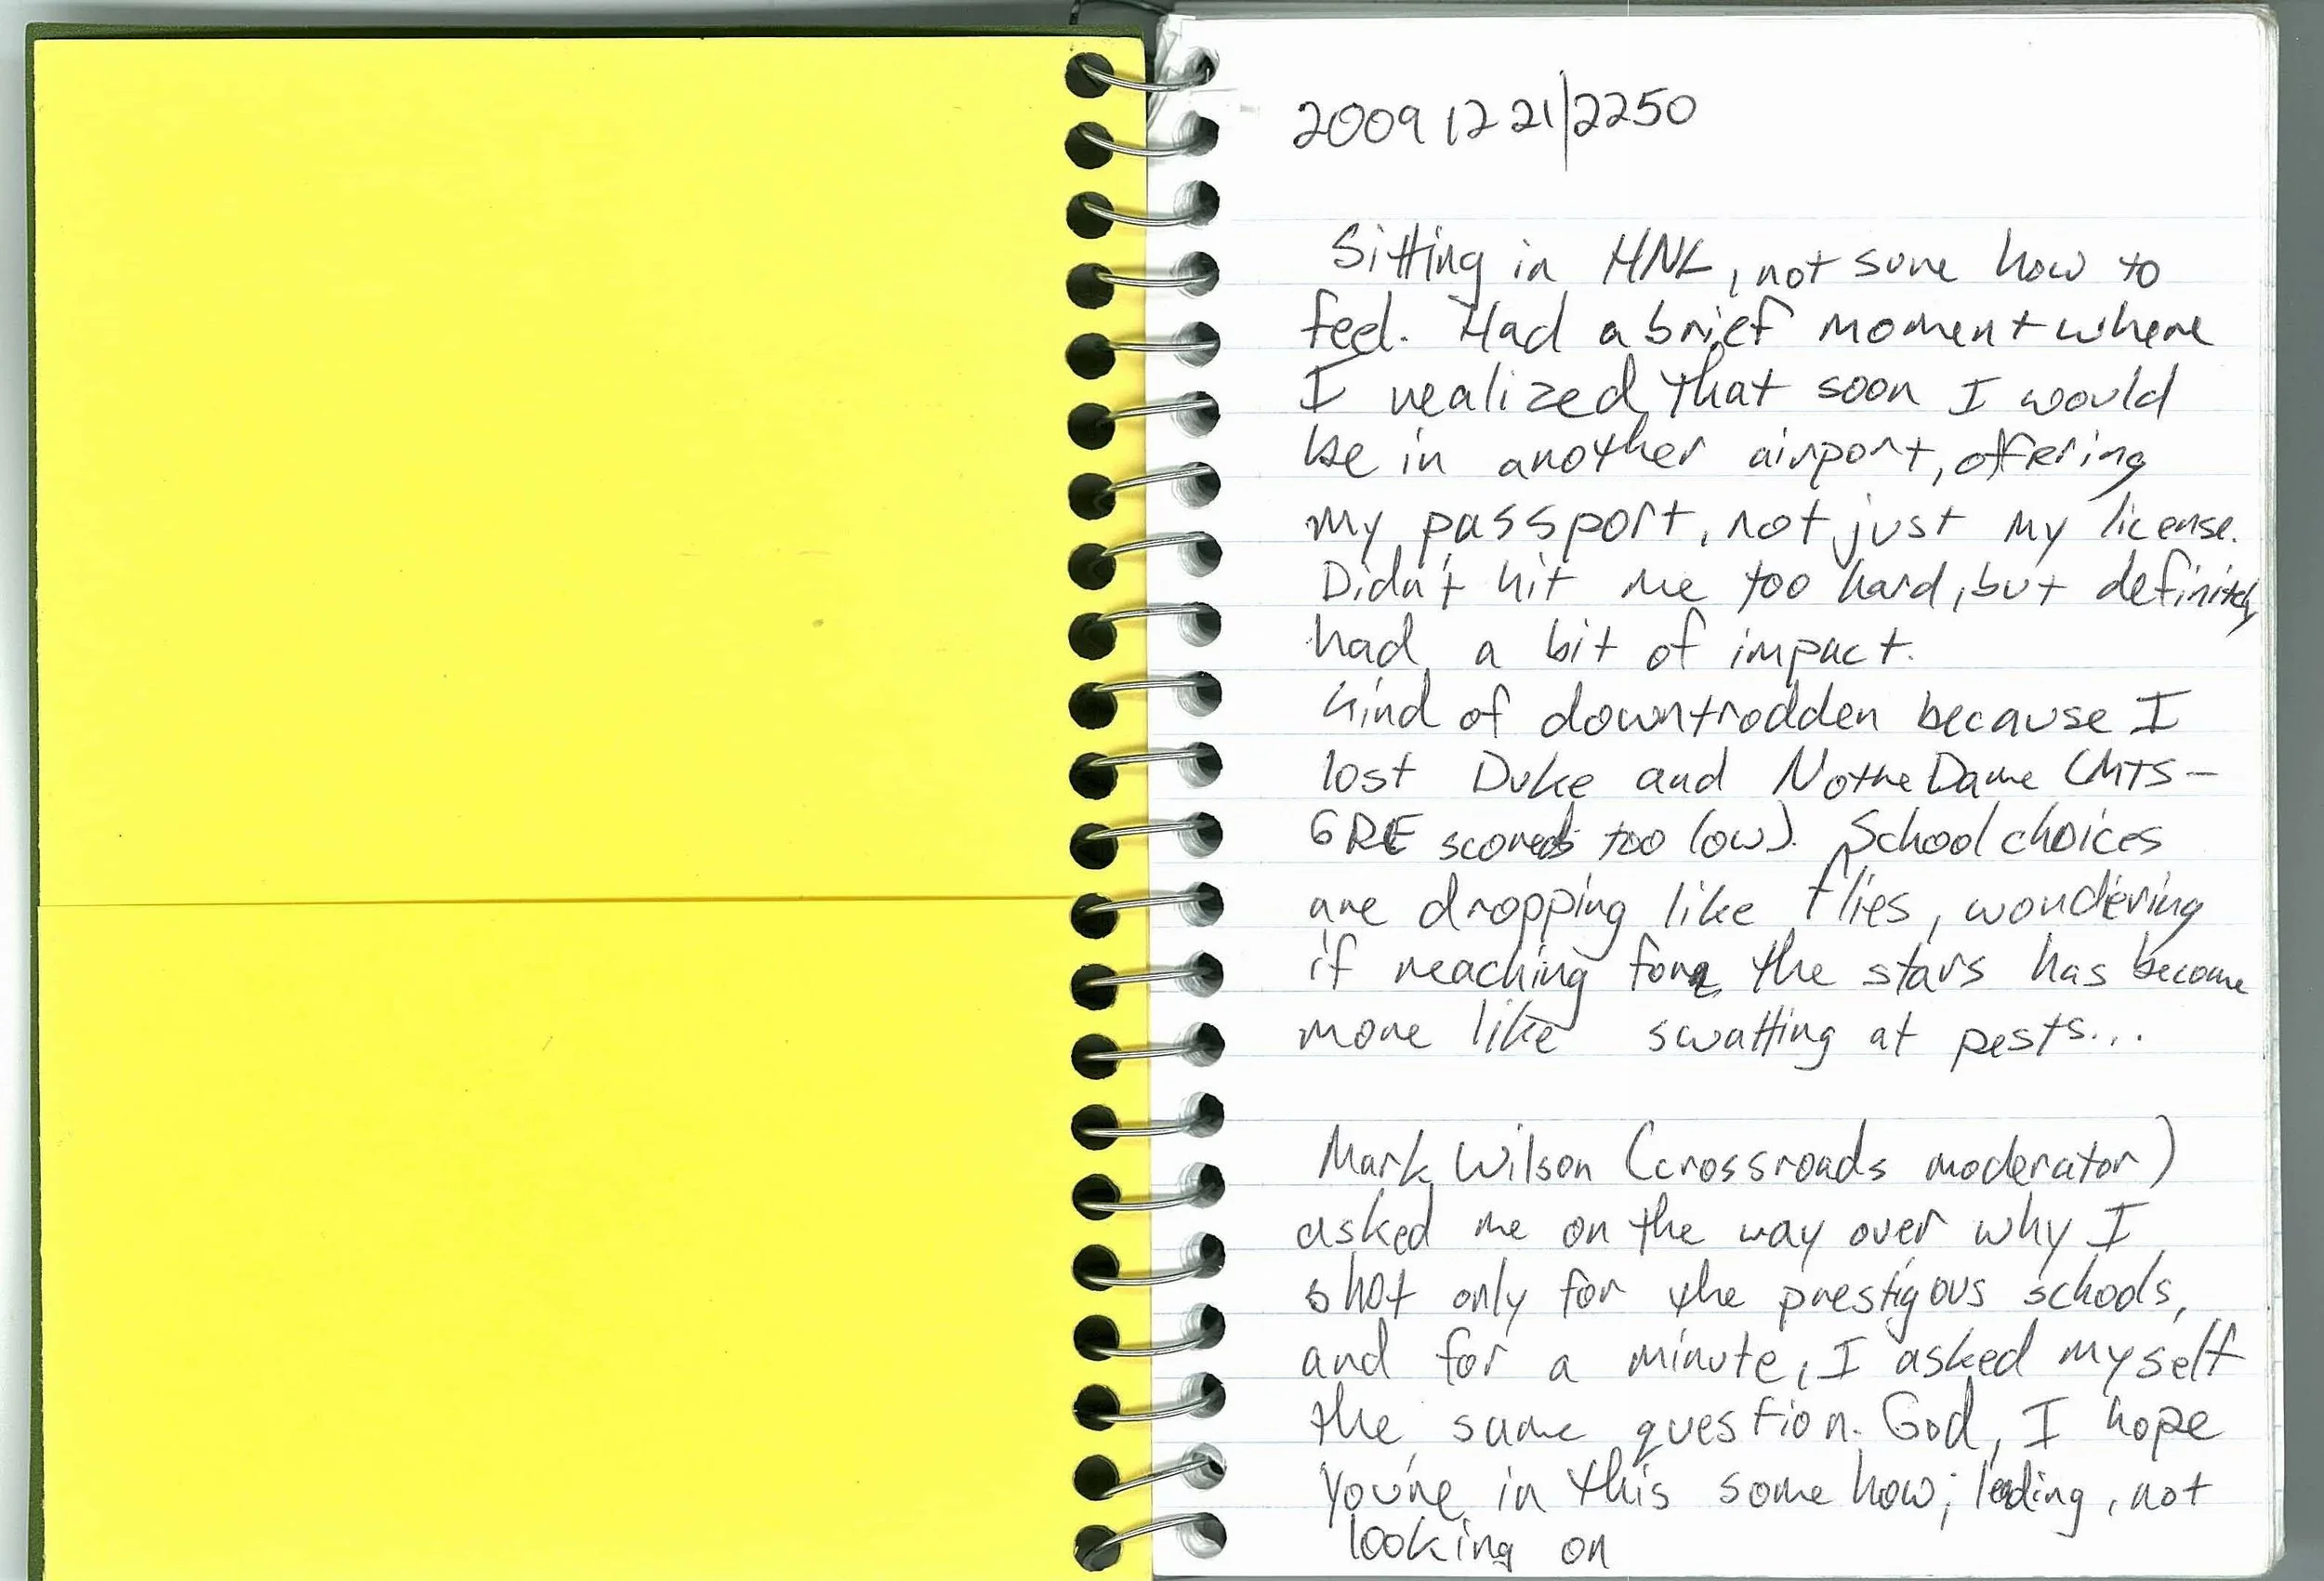 2009 12 21|2250
Sitting in HNL, not sure how to
feel. Had a brief moment where
I realized that soon I would
be in another airport, offering
my passport, not just my license.
Didn't hit me too hard, but definitely
had a bit of impact.
Kind of downtrodden because I
lost Duke and Notre Dame (MTS-
GRE scores too low). School choices
are dropping like flies, wondering
if reaching for the stars has become
more like swatting at pests...
Mark Wilson (crossroads moderator)
asked me on the way over why I
shot only for the prestigous schools,
and for a minute, I asked myself
the same question. God, I hope
you're in this somehow; leading, not
looking on